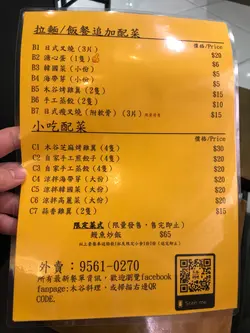 拉麵/飯餐追加配菜
價格/Price
B1 日式叉燒 (3片) $20
B2 溏心蛋 (1隻) $6
B3 韓國菜 (小份) $10
B4 海帶芽 (小份) $10
B5 木谷烤雞翼 (2隻) $15
B6 手工蒸餃 (2隻) $10
B7 日式機叉燒 (附軟骨) (3片) $15
小吃配菜
價格/Price
C1 木谷芝麻烤雞翼 (4隻) $30
C2 自家手工煎餃子 (4隻) $20
C3 自家手工蒸餃 (4隻) $20
C4 涼拌海帶芽 (大份) $20
C5 涼拌韓國菜 (大份) $20
C6 涼拌高麗菜 (大份) $20
C7 蒜香雞翼 (2隻) $15
限定菜式 (限量發售,售完即止)
鰻魚炒飯 $65
外賣:9561-0270
所有最新餐單資訊,歡迎瀏覽facebook
fanpage:木谷料理,或掃描右邊QR
CODE.
Scan me